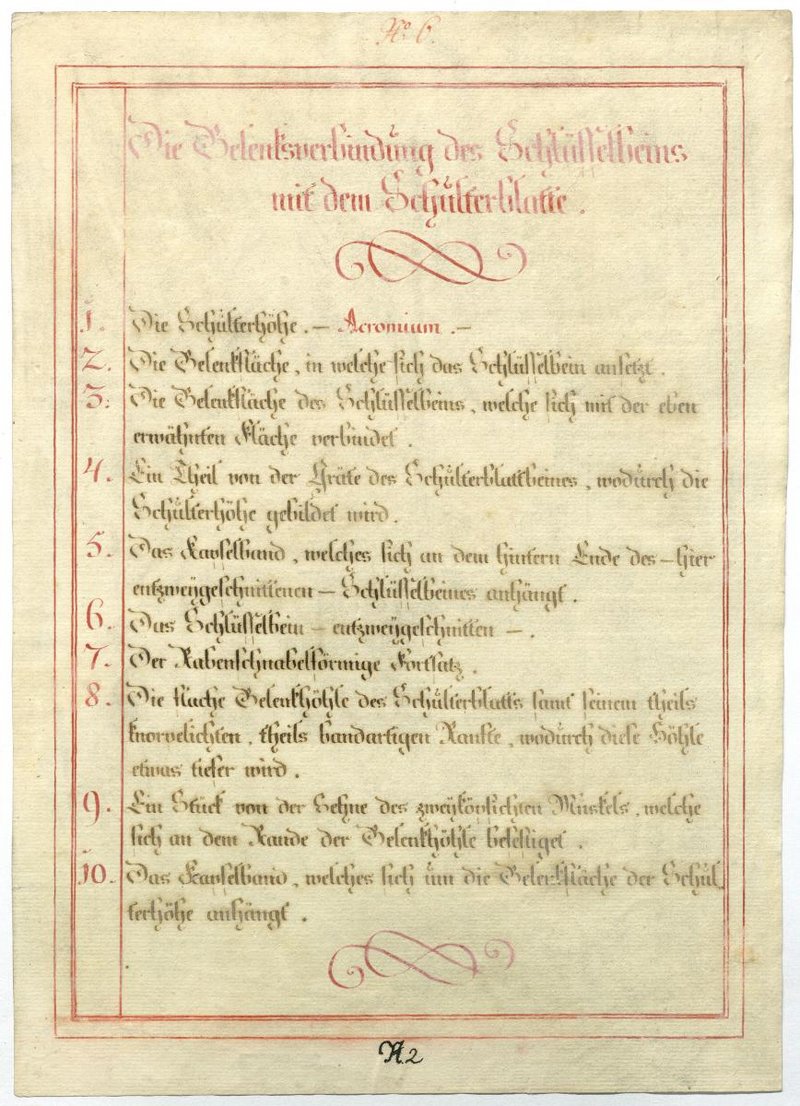 No. 6.
Die Gelenksverbindung des Schlüsselbeins
mit dem Schulterblatte.
1. Die Schulterhöhe. – Acromium. –
2. Die Gelenkfläche, in welche sich das Schlüsselbein ansetzt.
3. Die Gelenkfläche des Schlüsselbeins, welche sich mit der eben
erwähnten Fläche verbindet.
4. Ein Theil von der Gräte des Schulterblattbeines, wodurch die
Schulterhöhe gebildet wird.
5. Das Kapselband, welches sich an dem hintern Ende des – hier
entzweygeschnittenen – Schlüsselbeines anhängt.
6. Das Schlüsselbein – entzweygeschnitten –.
7. Der Rabenschnabelförmige Fortsatz.
8. Die flache Gelenkhöhle des Schulterblatts samt seinem theils
knorpelichten, theils bandartigen Ranfte, wodurch diese Höhle
etwas tiefer wird.
9. Ein Stück von der Sehne des zweyköpfichten Muskels, welche
sich an dem Rande der Gelenkhöhle befestiget.
10. Das Kapselband, welches sich um die Gelenkfläche der Schul
terhöhe anhängt.
N. 2